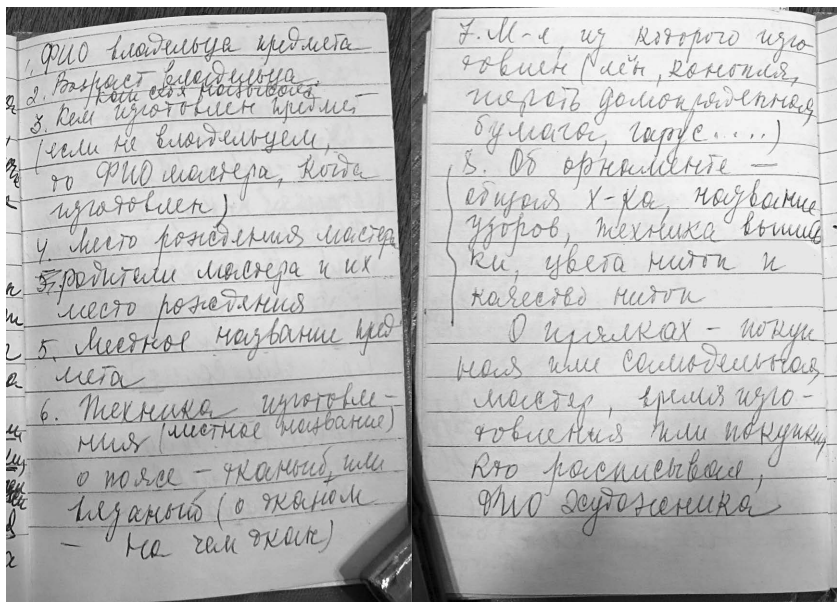 1. ФИО владельца предмета
2. Возраст владельца
как себя называют
3. Кем изготовлен предмет
(если не владельцем,
то ФИО мастера, когда
изготовлен)
4. Место рождения мастера
5. родители мастера и их
место рождения
5. Местное название пред
мета
6. Техника изготовле-
ния (местное название)
о поясе – тканый, или
вязаный (о тканом
– на чем ткан)
7. М-л, из которого изго
товлен (лён, конопля,
шерсть домопряденная,
бумага, гарус.....)
8. Об орнаменте –
общая х-ка, название
узоров, техника вышив
ки, цвета ниток и
качество ниток
О прялках – покуп
ная или самодельная,
мастер, время изго-
товления или покупки,
кто расписывал,
ФИО художника